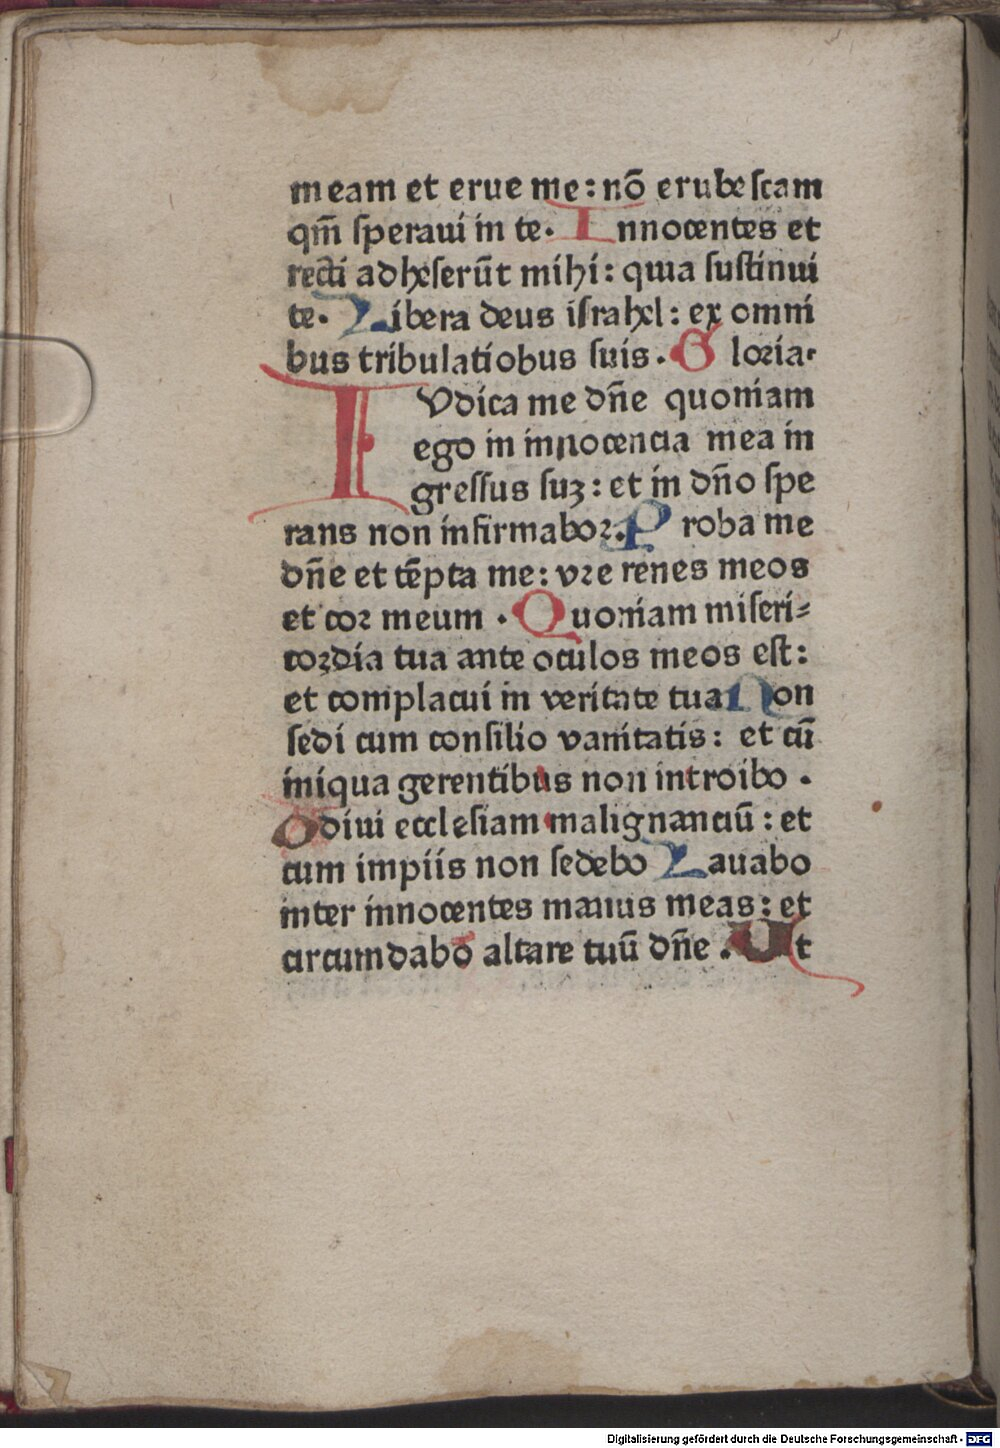 meam et erue me: nō erubescam
qm̄ speraui in te. Innocentes et
recti adheserūt mihi: quia sustinui
te. Libera deus israhel: ex omni
bus tribulatiobus suis. Gloria.
IVdica me dn̄e quoniam
ego in innocencia mea in
gressus suʒ: et in dn̄o spe
rans non infirmabor. Proba me
dn̄e et tēpta me: vre renes meos
et cor meum. Quoniam miseri⸗
cordia tua ante oculos meos est:
et complacui in veritate tua Non
sedi cum consilio vanitatis: et cū
iniqua gerentibus non introibo.
Odiui ecclesiam malignanciū: et
cum impiis non sedebo Lauabo
inter innocentes manus meas: et
circumdabo altare tuū dn̄e. Ut
Digitalisierung gefördert durch die Deutsche Forschungsgemeinschaft - DFG